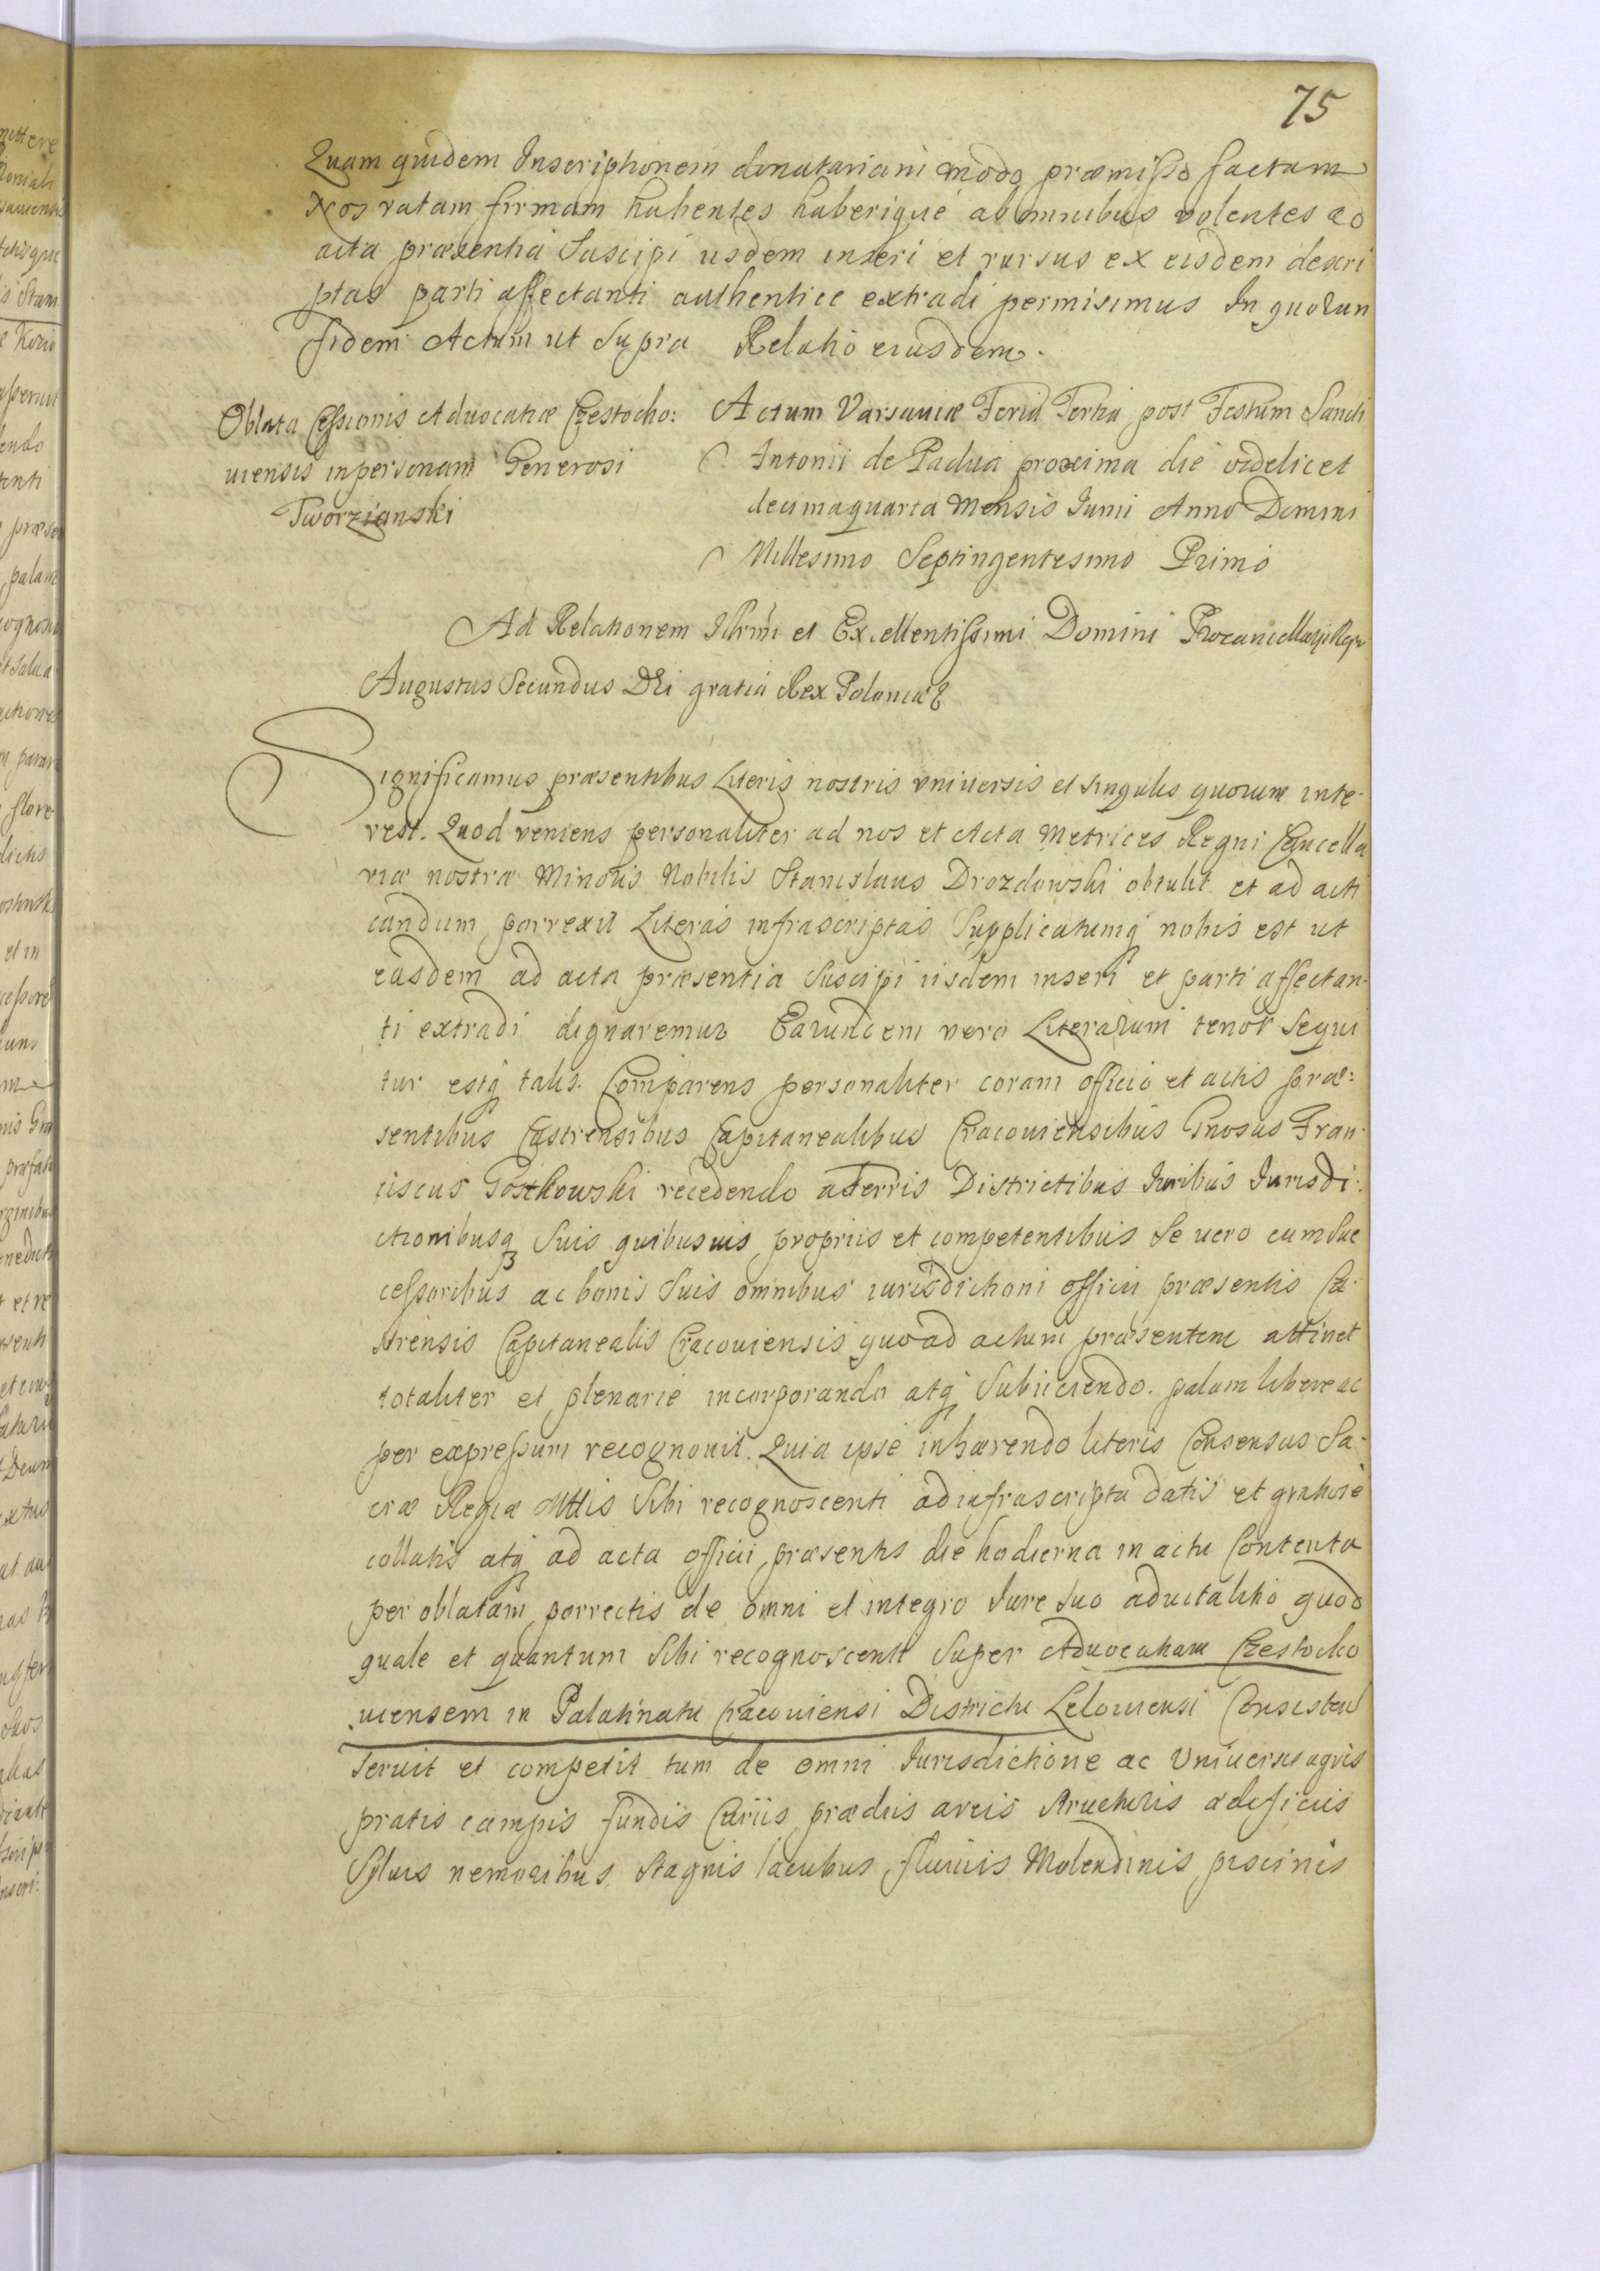 75
Quam quidem Inscriptionem donatariam modo præmisso factam
Nos ratam firmam habentes haberique ab omnibus volentes ad
acta præsentia Suscipi iisdem inseri et rursus ex eisdem descri
ptas parti affectanti authentice extradi permisimus In quorum
fidem Actum ut Supra Relatio eiusdem.
Oblata Cessionis Advocatiæ Czestocho:
uiensis in personam Generosi
Tworzianski
Actum Varsauiæ Feria Tertia post Festum Sancti
Antonii de Padua proxima die videlicet
decima quarta Mensis Iunii Anno Domini
Millesimo Septingentesimo Primo
Ad Relationem Illrmi et Excellentissimi Domini Procancellarii Regni
Augustus Secundus DEi gratia Rex Poloniæ &
Significamus præsentibus Literis nostris vniuersis et singulis quorum inte-
rest. Quod veniens personaliter ad nos et Acta Metrices Regni Cancella
riæ nostræ Minoris Nobilis Stanislaus Drozdowski obtulit et ad acti
candum porrexit Literas infrascriptas Supplicatumq nobis est ut
easdem ad acta præsentia Suscipi iisdem inseri et parti affectan-
ti extradi dignaremur Earundem vero Literarum tenor Sequi
tur estq talis. Comparens personaliter coram officio et actis præ:
sentibus Castrensibus Capitanealibus Cracouiensibus Gnosus Fran-
ciscus Gostkowski recedendo a Terris Districtibus Iuribus Iurisdi-
ctionibusq Suis quibusuis propriis et competentibus Se uero cum Suc
cessoribus ac bonis Suis omnibus iurisdictioni officii præsentis Ca-
strensis Capitanealis Cracouiensis quoad actum præsentem attinet
totaliter et plenarie incorporando atq Subiiciendo. palam libere ac
per expressum recognouit. Quia ipse inhærendo literis Consensus Sa-
cræ Regiæ Mttis Sibi recognoscenti ad infrascripta datis et gratiose
collatis atq ad acta officii præsentis die hodierna in actu Contenta
per oblatam porrectis de omni et integro Iure Suo aduitalitio quod
quale et quantum Sibi recognoscenti Super Aduocatiam Czestocho
uiensem in Palatinatu Cracouiensi Districtu Lelouiensi Consisten
Seruit et competit tum de omni Iurisdictione ac Vniuersis agris
pratis campis fundis Curiis prædiis areis Structuris ædeficiis
Syluis nemoribus Stagnis lacubus fluuiis Molendinis piscinis